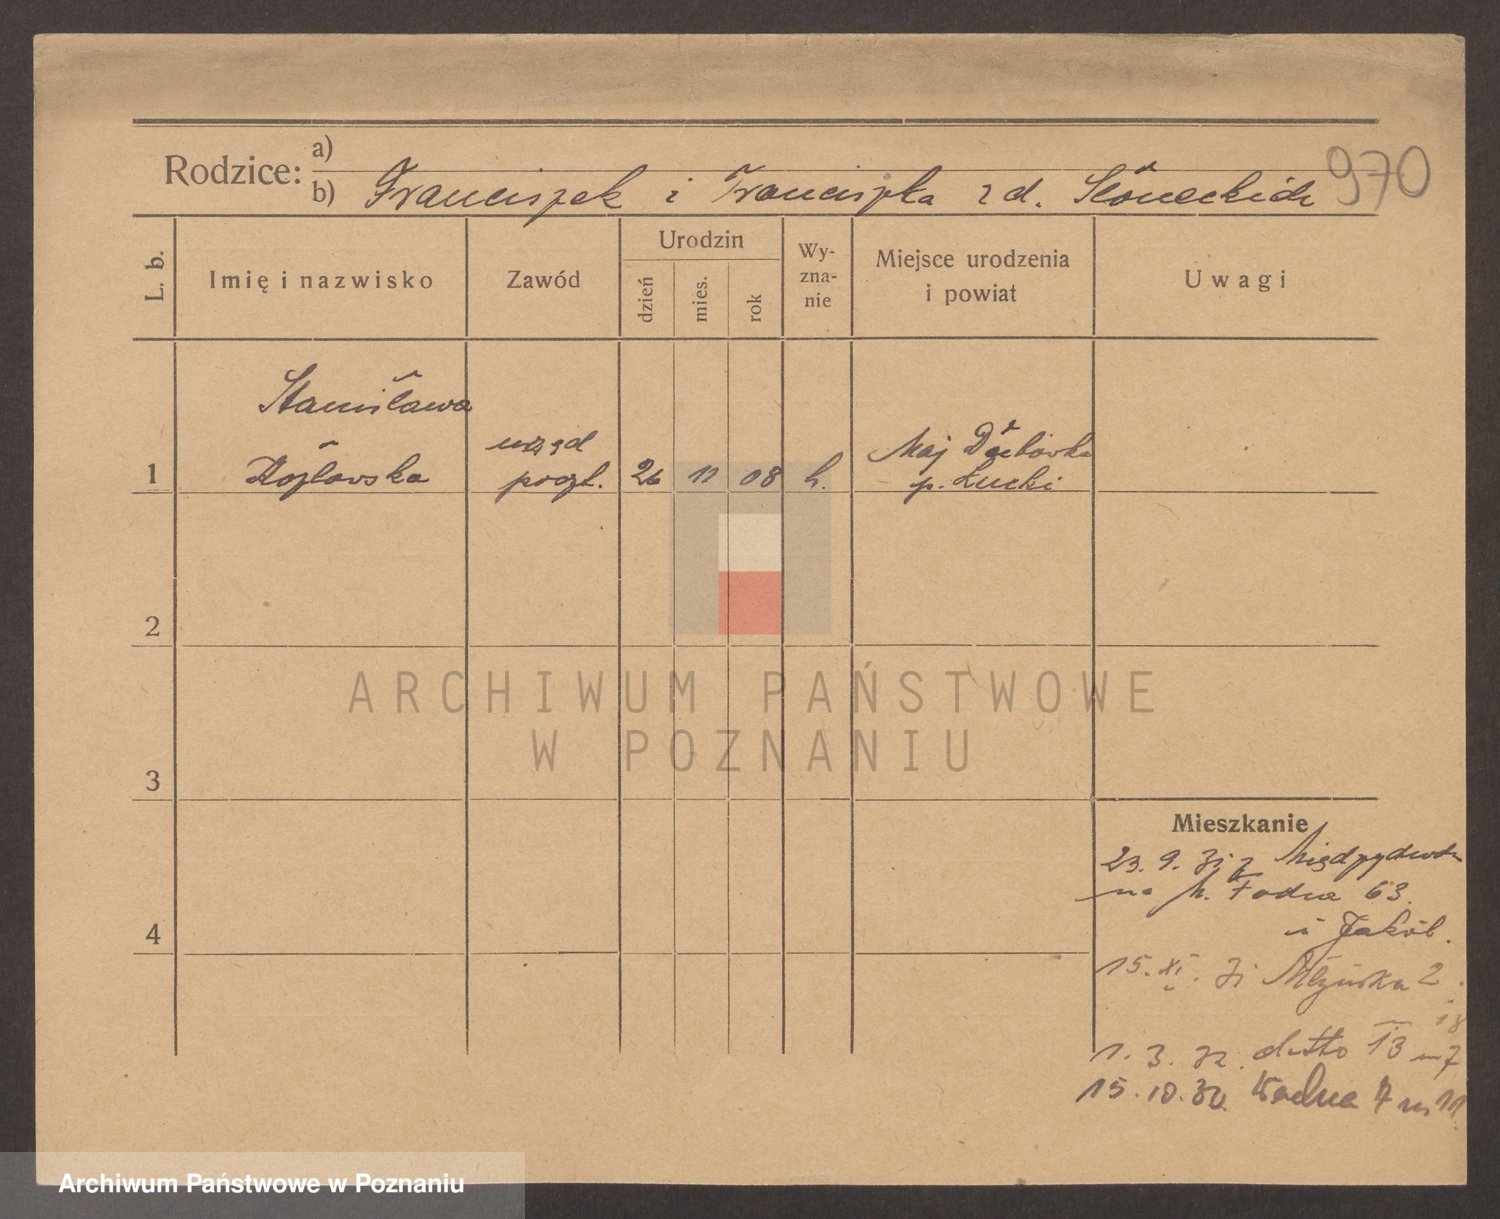 970
Rodzice: a)
b) Franciszek i Franciszka z d. Słoneckich
L. b.
Imię i nazwisko
Zawód
Urodzin
dzień
mies.
rok
Wy-
zna-
nie
Miejsce urodzenia
i powiat
Uwagi
Stanisława
Kozłowska
urzęd
poczt.
1
26
11
08
k.
Maj Dąbrówka
p. Łucki
2
3
4
Mieszkanie
23. 9. 31 z
na
63
i Jakób.
15. XI. 31
2
18
1. 3. 32. ditto 13 m 7
15. 10. 32 Wodna 7 m 11
ARCHIWUM PAŃSTWOWE
W POZNANIU
Archiwum Państwowe w Poznaniu